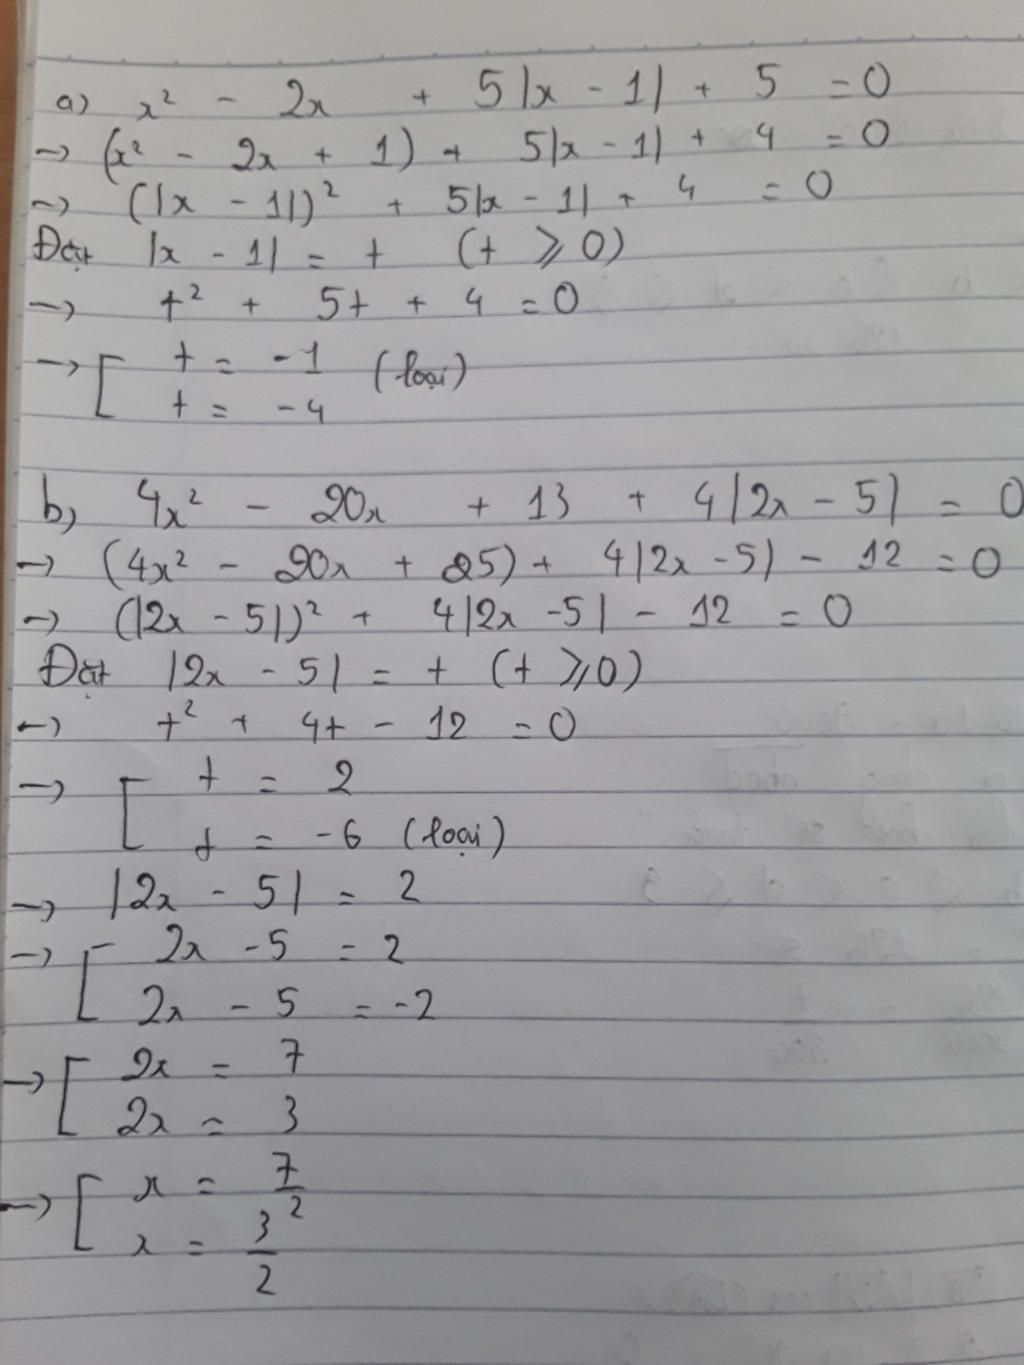 a) x² - 2x + 5|x - 1| + 5 = 0
→ (x² - 2x + 1) + 5|x - 1| + 4 = 0
→ (|x - 1|)² + 5|x - 1| + 4 = 0
Đặt |x - 1| = t (t ⩾ 0)
→ t² + 5t + 4 = 0
→ [ t = -1 (loại)
t = -4
b) 4x² - 20x + 13 + 4|2x - 5| = 0
→ (4x² - 20x + 25) + 4|2x - 5| - 12 = 0
→ (|2x - 5|)² + 4|2x - 5| - 12 = 0
Đặt |2x - 5| = t (t ⩾ 0)
→ t² + 4t - 12 = 0
→ [ t = 2
t = -6 (loại)
→ |2x - 5| = 2
→ [ 2x - 5 = 2
2x - 5 = -2
→ [ 2x = 7
2x = 3
→ [ x = 7/2
x = 3/2